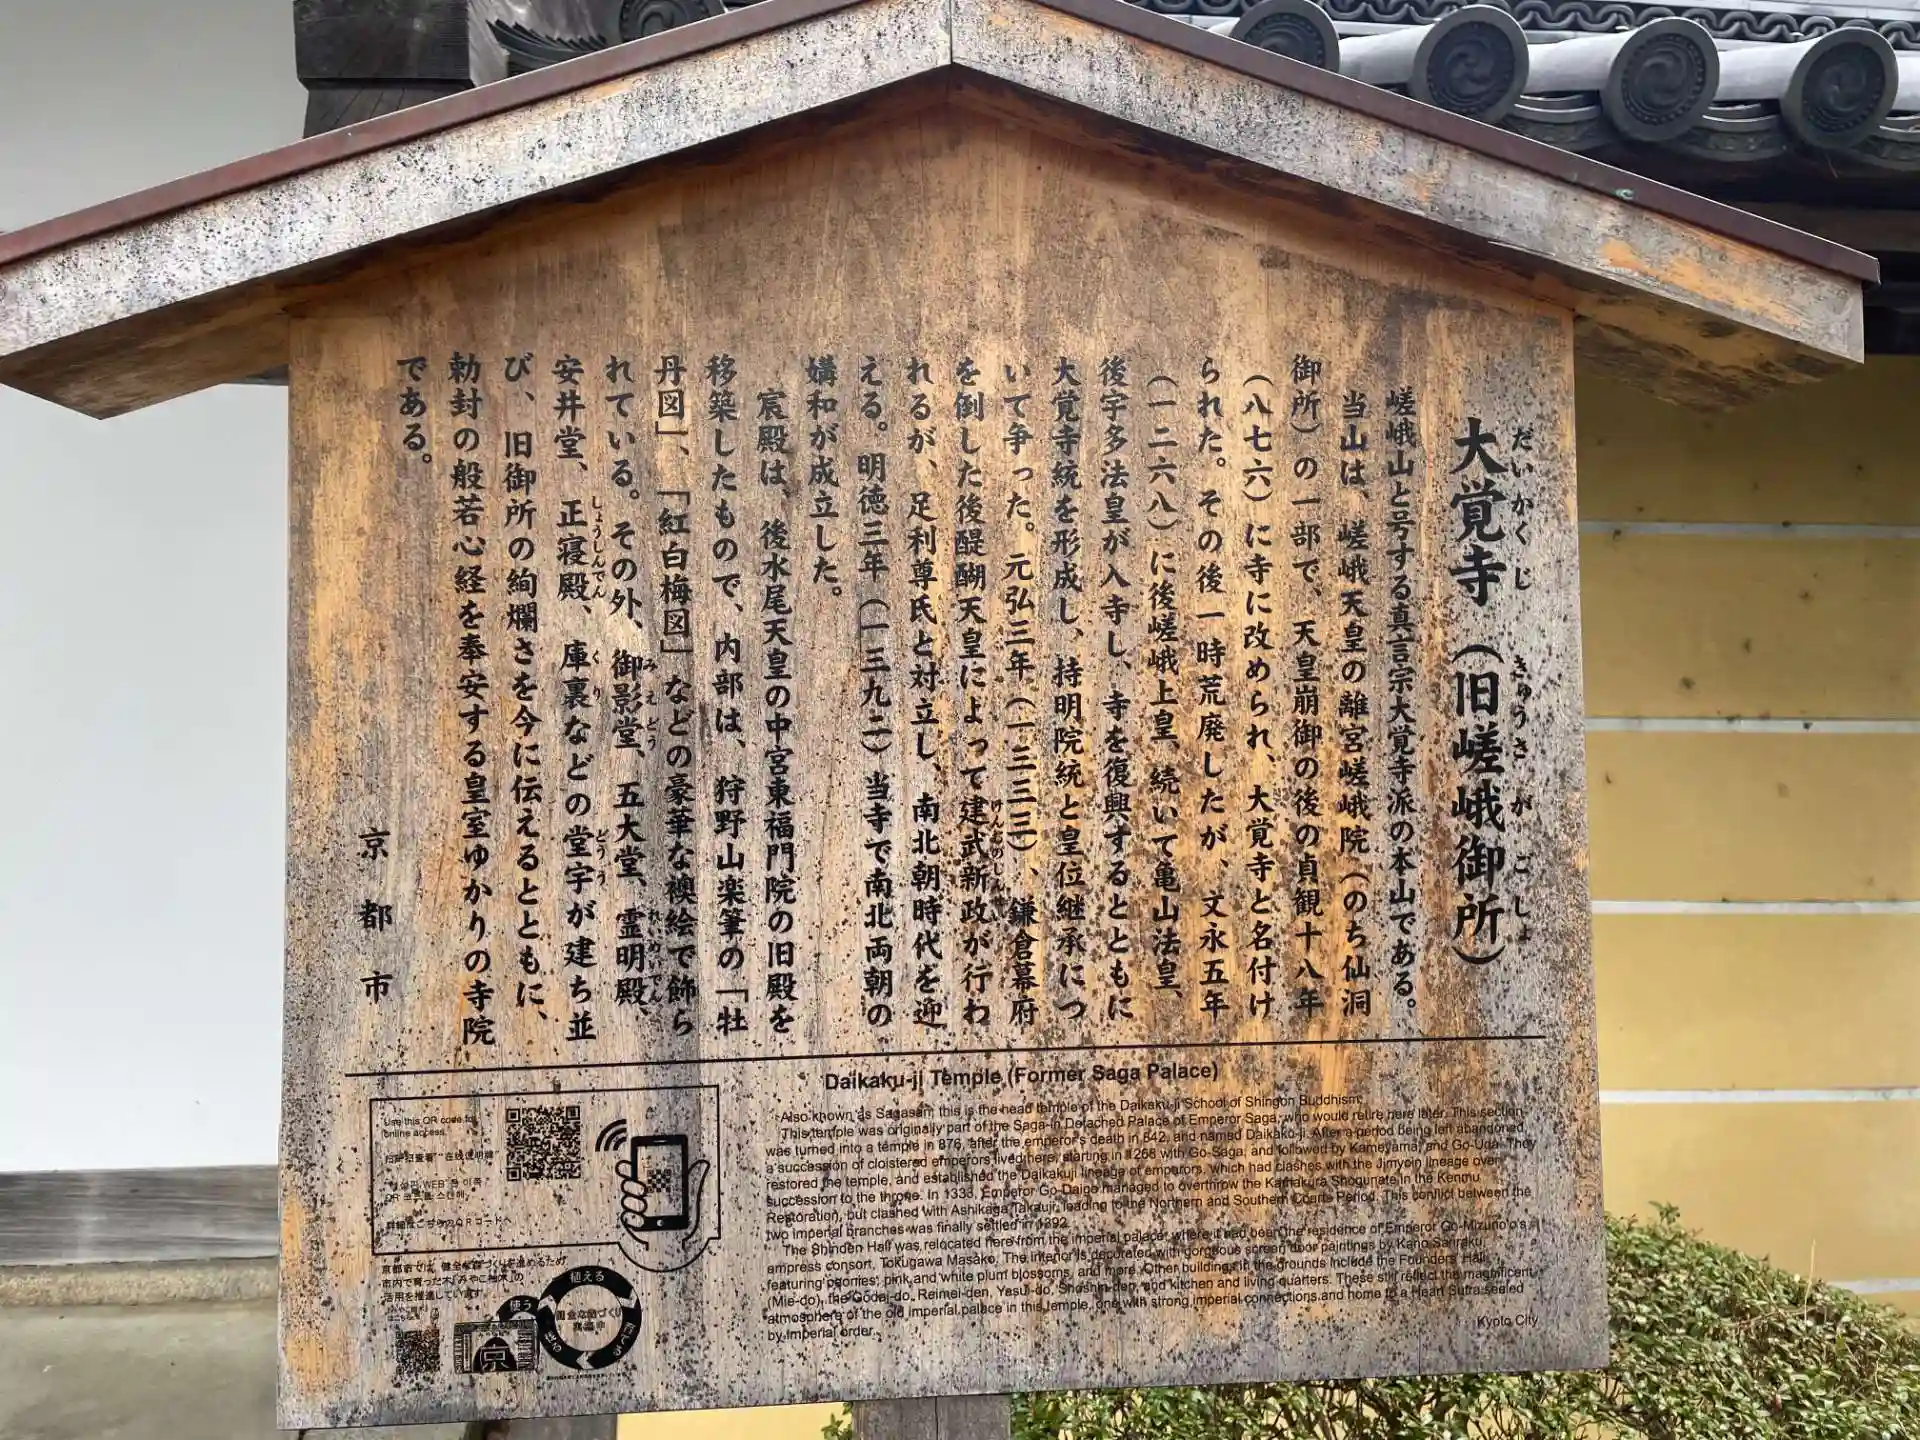 大覚寺（旧嵯峨御所）
だいかくじ きゅうさがごしょ
嵯峨山と号する真言宗大覚寺派の本山である。
当山は、嵯峨天皇の離宮嵯峨院（のち仙洞
御所）の一部で、天皇崩御の後の貞観十八年
（八七六）に寺に改められ、大覚寺と名付け
られた。その後一時荒廃したが、文永五年
（一二六八）に後嵯峨上皇、続いて亀山法皇、
後宇多法皇が入寺し、寺を復興するとともに
大覚寺統を形成し、持明院統と皇位継承につ
いて争った。元弘三年（一三三三）、鎌倉幕府
を倒した後醍醐天皇によって建武新政が行わ
けんむのしんせい
れるが、足利尊氏と対立し、南北朝時代を迎
える。明徳三年（一三九二）当寺で南北両朝の
媾和が成立した。
宸殿は、後水尾天皇の中宮東福門院の旧殿を
移築したもので、内部は、狩野山楽筆の「牡
丹図」、「紅白梅図」などの豪華な襖絵で飾ら
れている。その外、御影堂、五大堂、霊明殿、
みえどう れいめいでん
安井堂、正寝殿、庫裏などの堂宇が建ち並
しょうしんでん くり どうう
び、旧御所の絢爛さを今に伝えるとともに、
勅封の般若心経を奉安する皇室ゆかりの寺院
である。
京都市
Daikaku-ji Temple (Former Saga Palace)
Also known as Sagasan, this is the head temple of the Daikaku-ji School of Shingon Buddhism.
This temple was originally part of the Saga-in Detached Palace of Emperor Saga, who would retire here later. This section
was turned into a temple in 876, after the emperor's death in 842, and named Daikaku-ji. After a period being left abandoned,
a succession of cloistered emperors lived here, starting in 1268 with Go-Saga, and followed by Kameyama, and Go-Uda. They
restored the temple, and established the Daikakuji lineage of emperors, which had clashes with the Jimyoin lineage over
succession to the throne. In 1333, Emperor Go-Daigo managed to overthrow the Kamakura Shogunate in the Kenmu
Restoration, but clashed with Ashikaga Takauji, leading to the Northern and Southern Courts Period. This conflict between the
two imperial branches was finally settled in 1392.
The Shinden Hall was relocated here from the imperial palace, where it had been the residence of Emperor Go-Mizuno'o's
empress consort, Tokugawa Masako. The interior is decorated with gorgeous screen door paintings by Kano Sanraku,
featuring peonies, pink and white plum blossoms, and more. Other buildings in the grounds include the Founders' Hall
(Mie-do), the Godai-do, Reimei-den, Yasui-do, Shoshin-den, and kitchen and living quarters. These still reflect the magnificent
atmosphere of the old imperial palace in this temple, one with strong imperial connections and home to a Heart Sutra sealed
by Imperial order.
Kyoto City
Use this QR code for
online access.
扫描 查看"在线说明牌
WEB
QR
詳細はこちらのQRコードへ
京都市では、健全な森づくりを進めるため、
市内で育った木「みやこ杣木」の
活用を推進しています
植える
使う
京